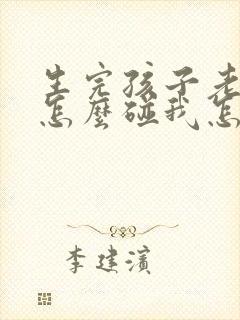 生完孩子老
怎麼碰我怎
李建濱